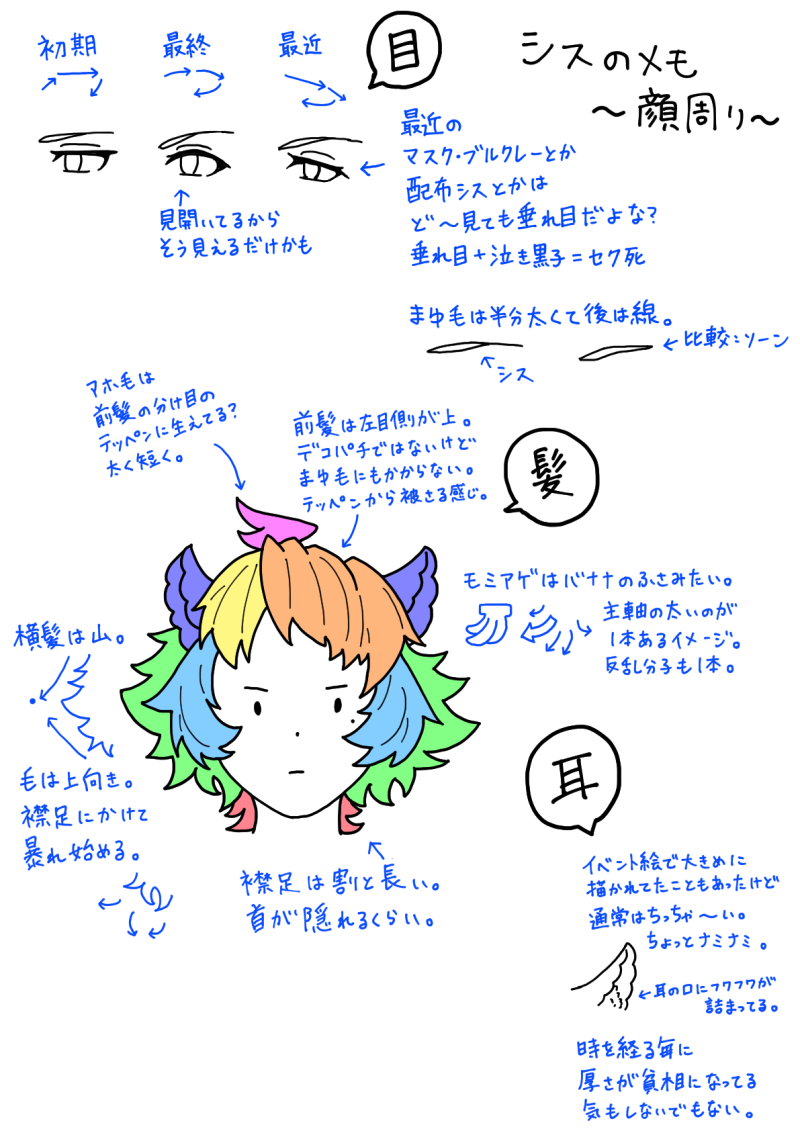 シスのメモ
～顔周り～
目
初期
最終
最近
見開いてるから
そう見えるだけかも
最近の
マスク・ブルクレーとか
配布シスとかは
ど～見ても垂れ目だよな?
垂れ目+泣き黒子=セク死
まゆ毛は半分太くて後は線。
←比較:ソーン
シス
髪
アホ毛は
前髪の分け目の
テッペンに生えてる?
太く短く。
前髪は左目側が上。
デコパチではないけど
まゆ毛にもかからない。
テッペンから被さる感じ。
モミアゲはバナナのふさみたい。
主軸の太いのが
1本あるイメージ。
反乱分子も1本。
横髪は山。
毛は上向き。
襟足にかけて
暴れ始める。
襟足は割と長い。
首が隠れるくらい。
耳
イベント絵で大きめに
描かれてたこともあったけど
通常はちっちゃ～い。
ちょっとナミナミ。
←耳の口にフワフワが
詰まってる。
時を経る毎に
厚さが貧相になってる
気もしないでもない。